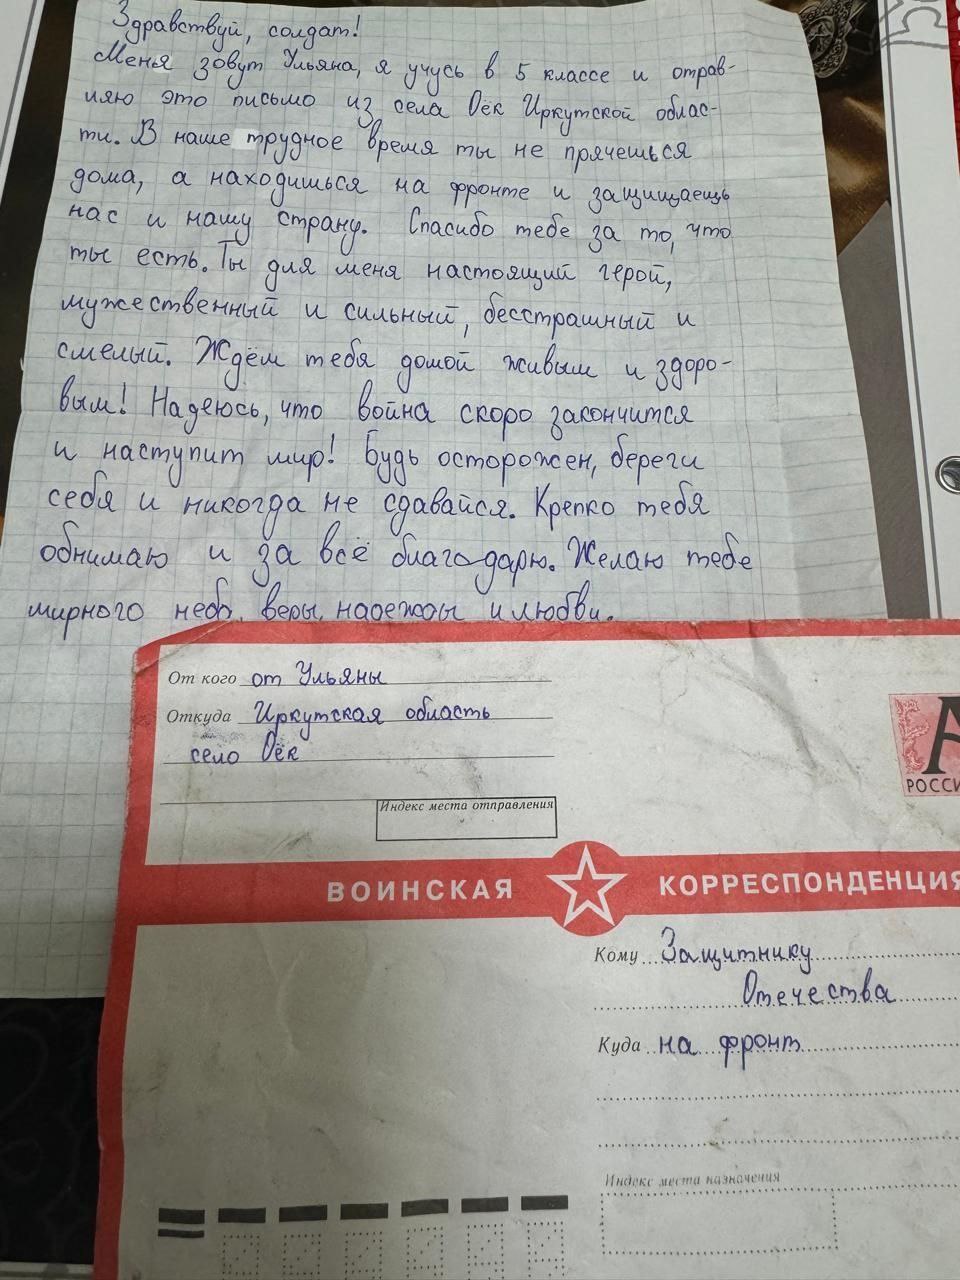 Здравствуй, солдат!
Меня зовут Ульяна, я учусь в 5 классе и отрав-
ляю это письмо из села Оёк Иркутской облас-
ти. В наше трудное время ты не прячешься
дома, а находишься на фронте и защищаешь
нас и нашу страну. Спасибо тебе за то, что
ты есть. Ты для меня настоящий герой,
мужественный и сильный, бесстрашный и
смелый. Ждём тебя домой живым и здоро-
вым! Надеюсь, что война скоро закончится
и наступит мир! Будь осторожен, береги
себя и никогда не сдавайся. Крепко тебя
обнимаю и за всё благодарю. Желаю тебе
мирного неба, веры, надежды и любви.
От кого от Ульяны
Откуда Иркутская область
село Оёк
Индекс места отправления
А
РОССИ
ВОИНСКАЯ КОРРЕСПОНДЕНЦИЯ
Кому Защитнику
Отечества
Куда на фронт
Индекс места назначения